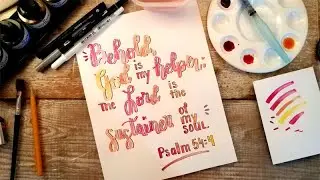 Behold,
God is my helper;
The Lord is the
sustainer of my
soul.
Psalm 54:4